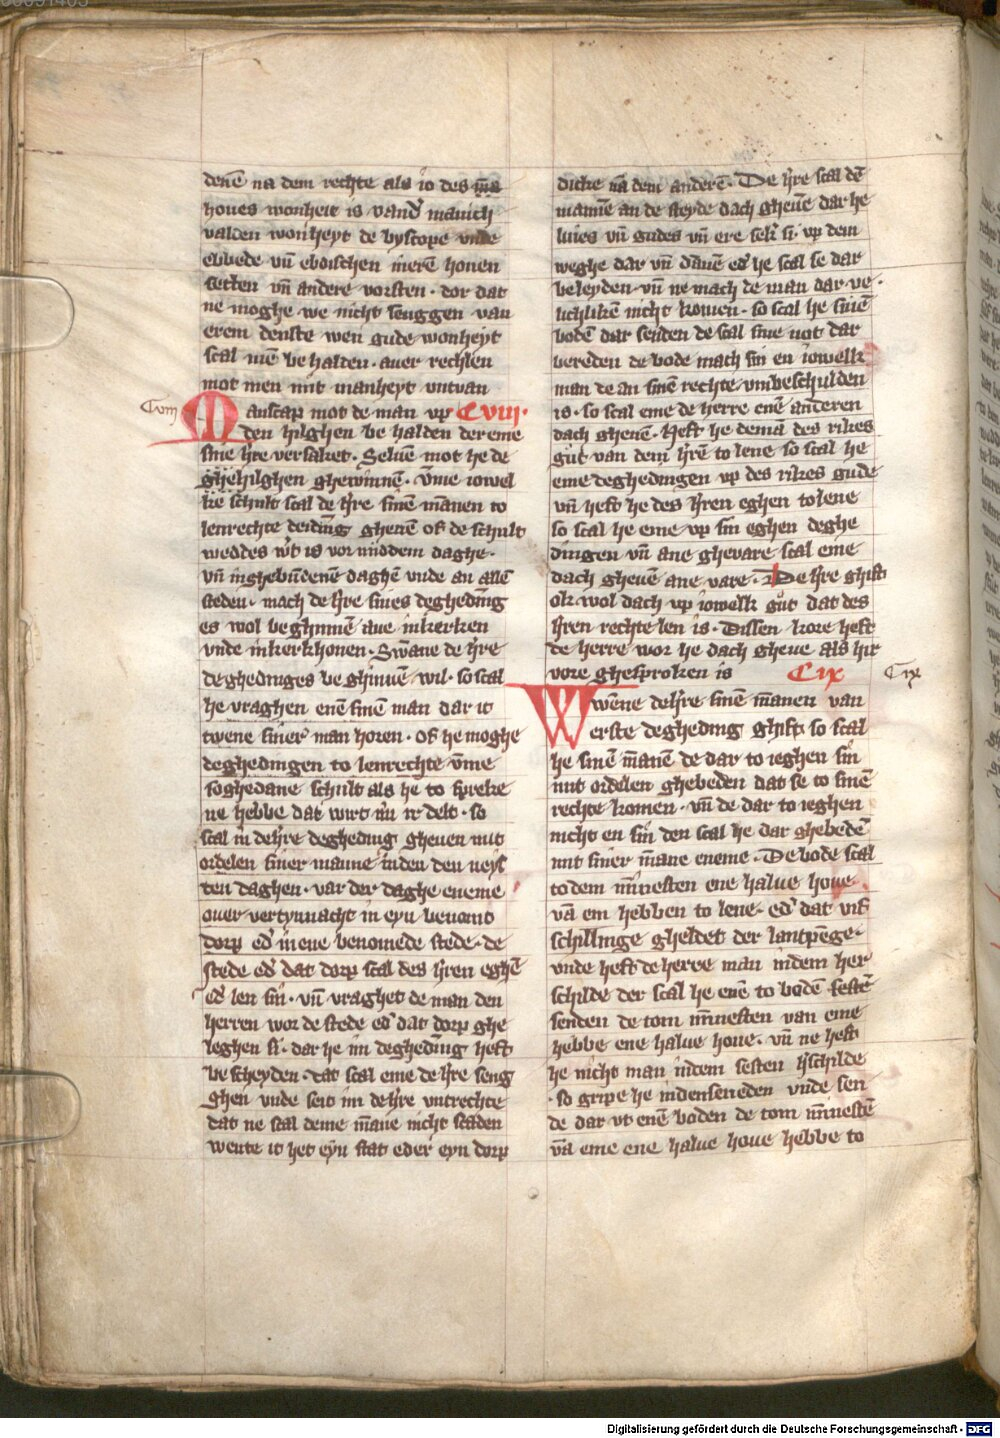 denē na dem rechte als io des ma
houes wonheit is vand' manich
valden wonheyt de byscope vnde
ebbede vn̄ eboischen irerē houen
setten vn̄ andere vorsten · dor dat
ne moghe we nicht seuggen van
erem denste wen gude wonheyt
scal mē be halden · auer rechten
mot men mit manheyt vntvan
Cviii
Manscap mot de man vp Cviii ·
den hilghen be halden der eme
sine h're versaket · Seluē mot he de
ghehilghen ghewinnē · vm̄e iowel
ke schult scal de h're sinē mānen to
lenrechte deiding gheuē of de schult
weddes w't is vor middem daghe ·
vn̄ inghebūdenē daghē vnde an allē
steden · mach de h're sines deghedīng
es wol be ghinnē ane inkerken
vnde in kerkhouen · Swāne de h're
de ghedinges be ghinnē wil · so scal
he vraghen enē sinē man dar it
twene siner man horen · of he moghe
deghedingen to lenrechte vm̄e
soghedane schult als he to spreke
ne hebbe dat wirt im ir delt · so
scal in de h're deghedīng gheuen mit
ordelen siner manne inden den neys
ten daghen · var der daghe eneme
ouer vertynnacht in eyn benomt
dorp ed' in ene benomede stede · de
stede ed' dat dorp scal des h'ren eghē
ed' len sin · vn̄ vraghet de man den
herren wor de stede ed' dat dorp ghe
leghen si · dar he im deghedīng heft
be scheyden · dat scal eme de h're seng
ghen vnde seit im de h're vntrechte
dat ne scal deme māne nicht scaden
wente it het eyn stat eder eyn dorp
dicke nā dem anderē · De h're scal dē
mannē an de steyde dach gheuē dar he
liues vn̄ gudes vn̄ ere sek' si · vp dem
weghe dar vn̄ dānē ed' he scal se dar
be leyden · vn̄ ne mach de man dar ve ·
lichlikē nicht komen · so scal he sinē
bodē dar senden de scal sine not dar
bereden de bode mach sin en iowelk
man de an sinē rechte vmbeschulden
is · so scal eme de herre enē anderen
dach gheuē · Heft he demā des rikes
gūt van dem h'rē to lene so scal he
eme deghedingen vp des rikes gude
vn̄ heft he des h'ren eghen to lene
so scal he eme vp sin eghen deghe
dingen vn̄ ane ghevare scal eme
dach gheuē ane vare · De h're ghift
ok wol dach vp iowelk gūt dat des
h'ren rechte len is · Dissen kore heft
de herre wor he dach gheue als hir
vore ghesproken is Cix
Cix
Wwēne de h're sinē mānen van
erste deghedīng ghift so scal
he sinē mānē de dar to ieghen sin
mit ordelen ghebeden dat se to sinē
rechte komen · vn̄ de dar to ieghen
nicht en sin den scal he dar ghebedē
mit siner māne eneme · De bode scal
to dem mīnesten ene halue houe
vā em hebben to lene · ed' dat vif
schillinge gheldet der lantpēge ·
vnde heft de herre man indem her
schilde der scal he enē to bodē sestē
senden de tom mīnesten van eme
hebbe ene halue houe · vn̄ ne heft
he nicht man indem sesten h'schilde
· so gripe he indenseueden vnde sen
de dar vt enē boden de tom mīnestē
vā eme ene halue houe hebbe to
Digitalisierung gefördert durch die Deutsche Forschungsgemeinschaft - DFG